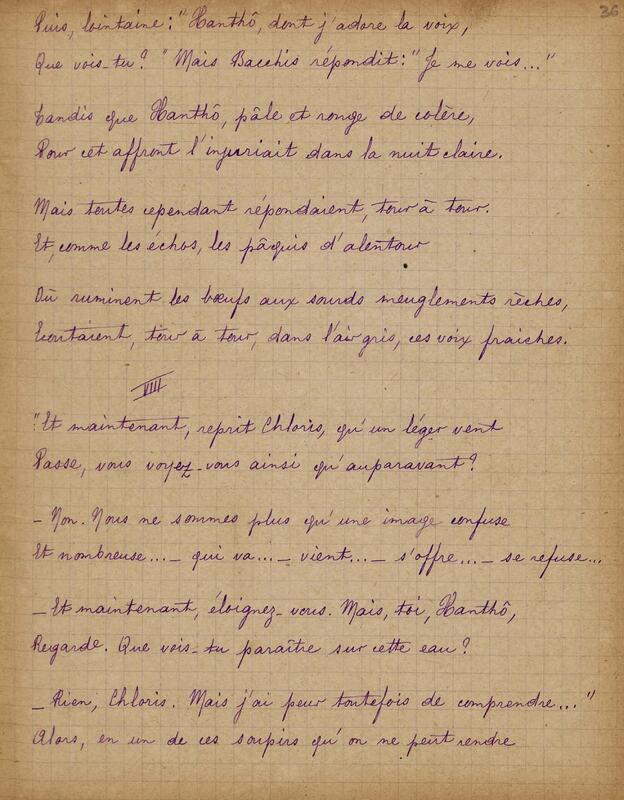 36
Puis, lointaine : "Xanthô, dont j'adore la voix,
Que vois-tu ? " Mais Bacchis répondit : "Je me vois..."
Tandis que Xanthô, pâle et rouge de colère,
Pour cet affront l'injuriait dans la nuit claire.
Mais toutes cependant répondaient, tour à tour.
Et, comme les échos, les pâquis d'alentour
Où ruminent les bœufs aux sourds meuglements rêches,
Ecoutaient, tour à tour, dans l'air gris, ces voix fraiches.
VIII
"Et maintenant, reprit Chloris, qu'un léger vent
Passe, vous voyez-vous ainsi qu'auparavant ?
_ Non. Nous ne sommes plus qu'une image confuse
Et nombreuse... _ qui va... _ vient... _ s'offre... _ se refuse...
_ Et maintenant, éloignez-vous. Mais, toi, Xanthô,
Regarde. Que vois-tu paraître sur cette eau ?
_ Rien, Chloris. Mais j'ai peur toutefois de comprendre..."
Alors, en un de ces soupirs qu'on ne peut rendre